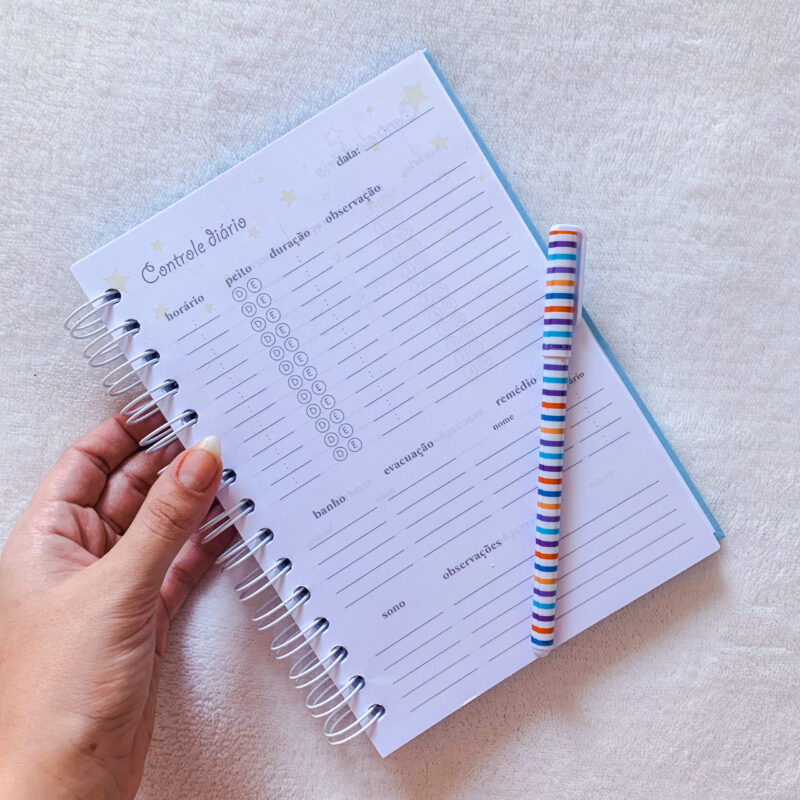 data:
Controle diário
horário peito duração observação
D E
D E
D E
D E
D E
D E
D E
D E
D E
D E
D E
D E
banho evacuação remédio
nome
sono observações